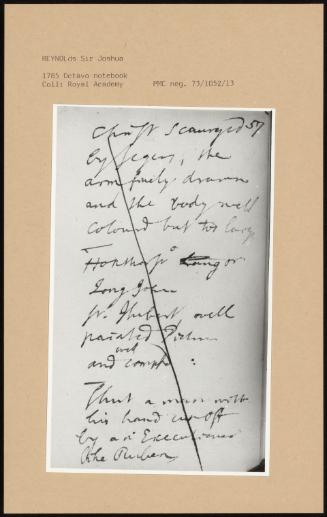 REYNOLDS Sir Joshua
1785 Octavo notebook
Coll: Royal Academy
PMC neg. 73/1052/13
Christ Scourged 57
by Segers, the
arm finely drawn
and the body well
coloured but too
or
Long John
St. Hubert well
painted
well
and
Thul a man with
his hand cut off
by an Executioner
like Rubens